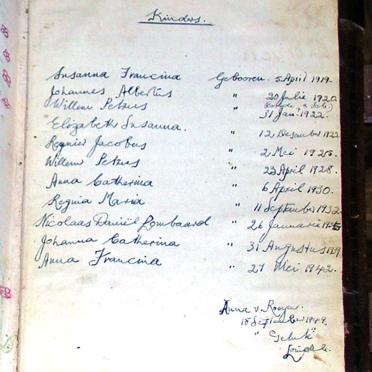 Kinders.
Susanna Francina Gebooren 5 April 1919.
Johannes Albertus " 20 Julie 1920.
Willem Petrus " 31 Jan. 1922.
Elizabeth Susanna. " 12 Desember 1922
Regnier Jacobus " 2 Mei 1925.
Willem Petrus " 23 April 1928.
Anna Catherina " 6 April 1930.
Regnia Maria " 11 September 1932
Nicolaas Daniël Lombaard " 26 Januarie
Johanna Catherina " 31 Augustus
Anna Francina " 27 Mei 1942.
Anna v. Rooyen.
15 September 1949.
"Geluk"